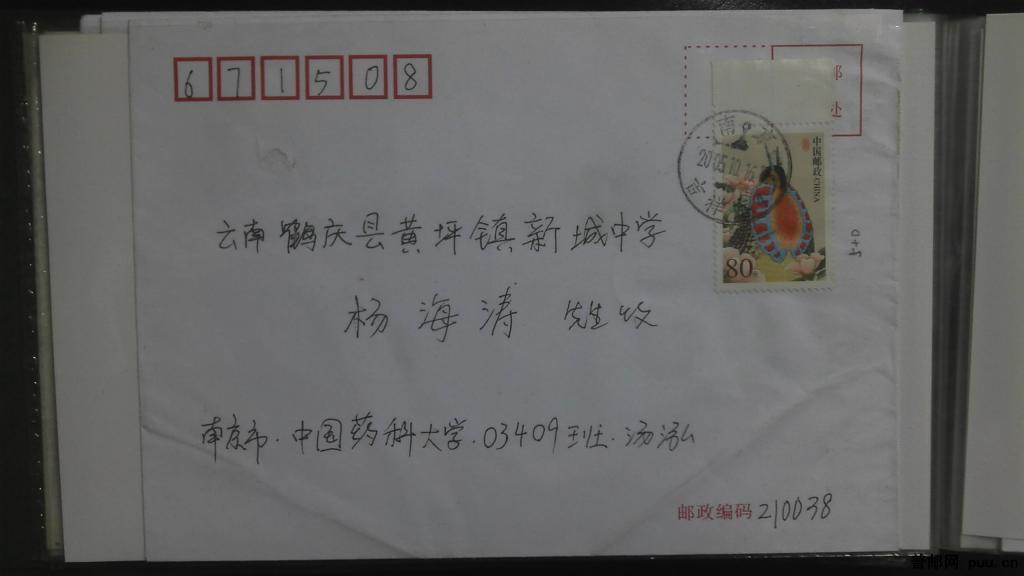 671508
云南鹤庆县黄坪镇新城中学
杨海涛 先生收
南京市.中国药科大学.03409班.汤泓
邮政编码 210038
邮
处
中国邮政 CHINA
80
南京
2005.11.16
普邮网 puu.cn